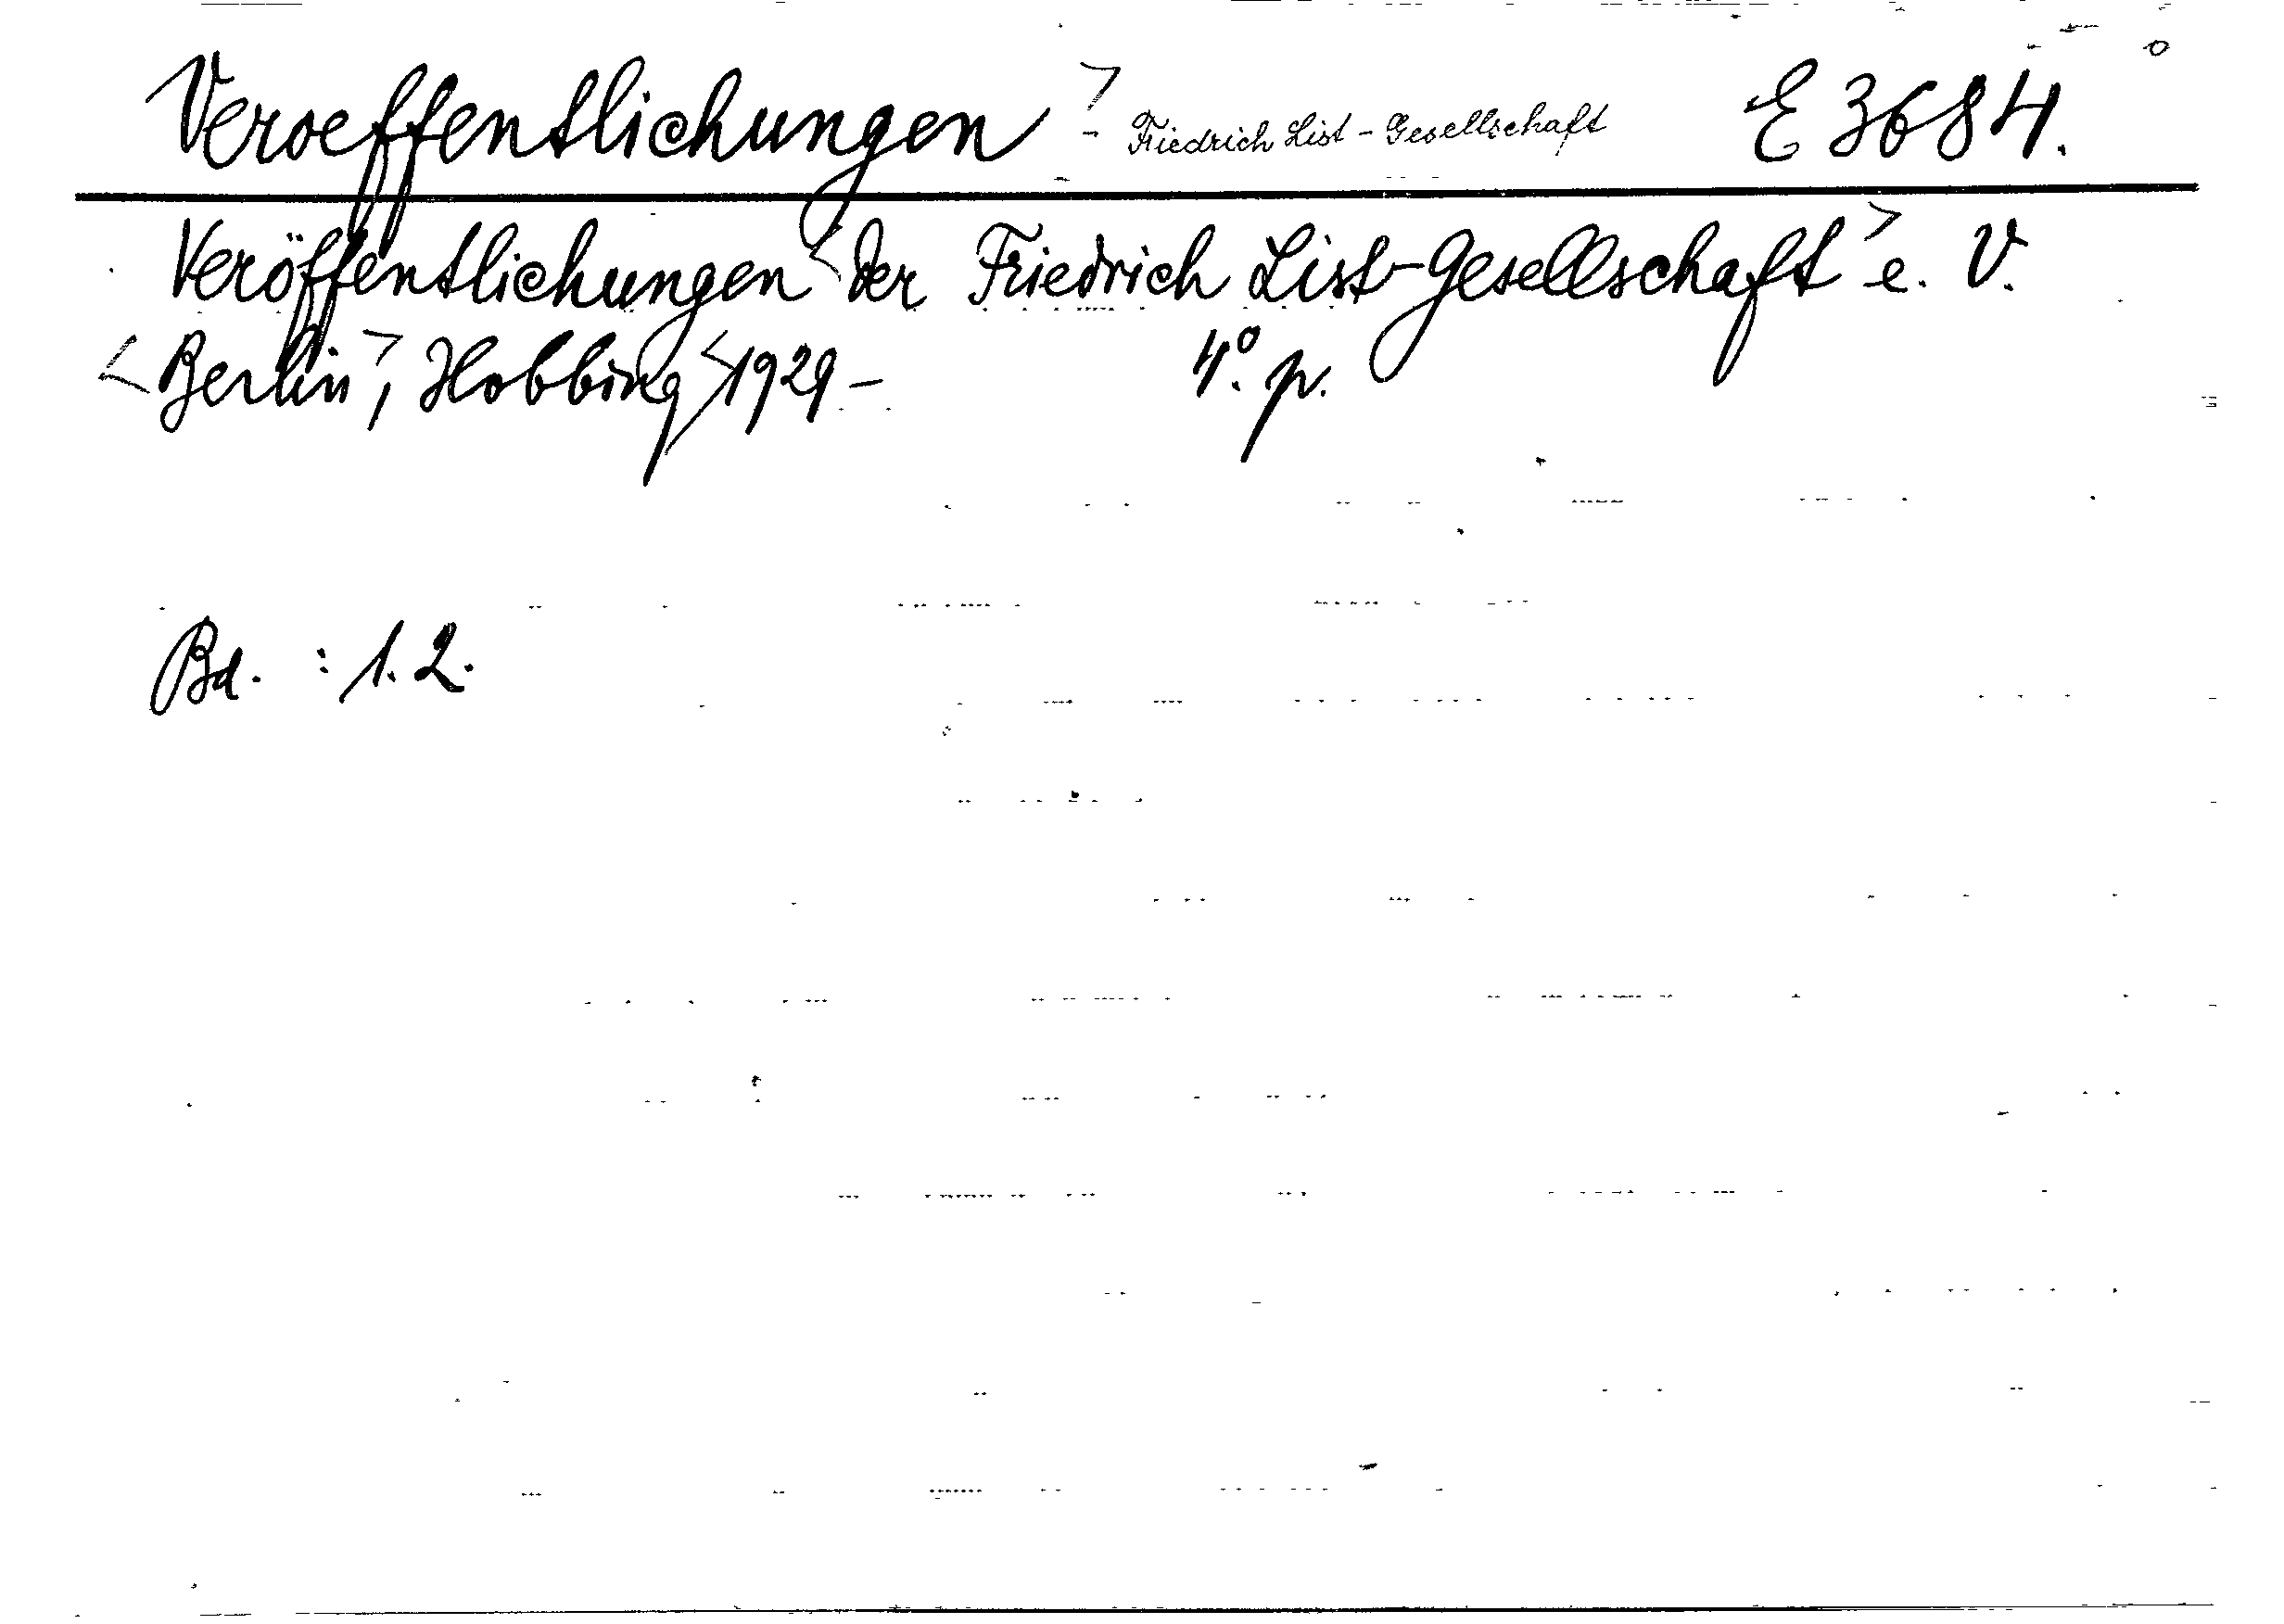 Veroeffentlichungen > - Friedrich List - Gesellschaft E 3684.
Veröffentlichungen < der Friedrich List-Gesellschaft > e. V.
< Berlin >, Hobbing < 1929 - 4°. p.
Bd. : 1. 2.